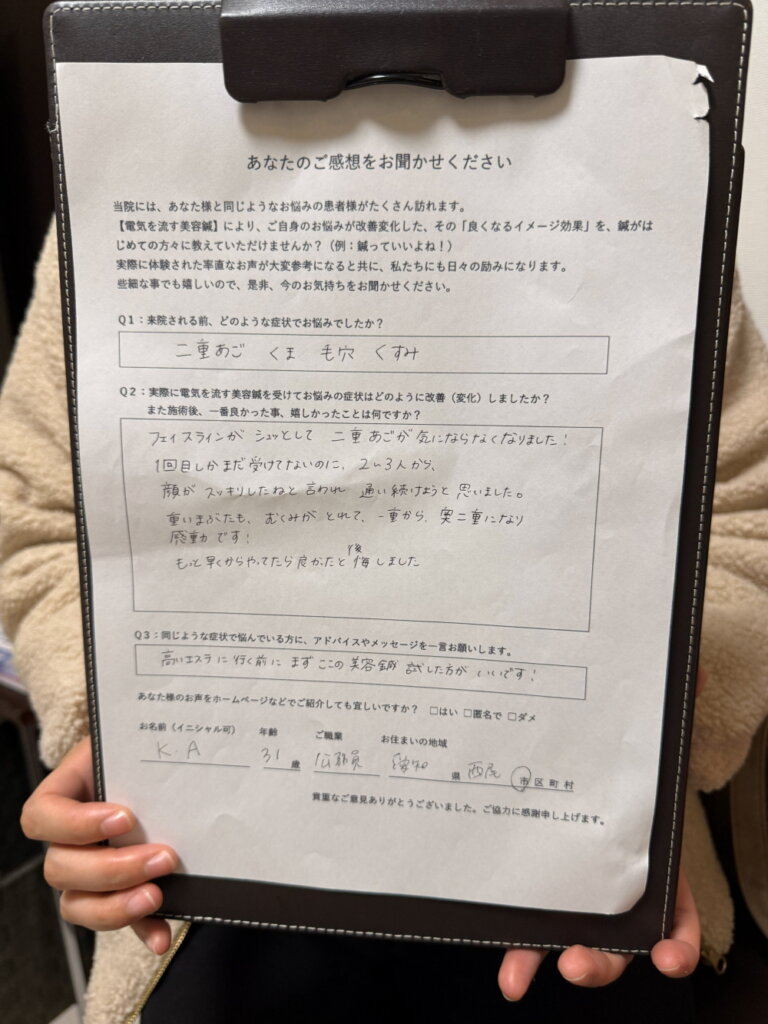 あなたのご感想をお聞かせください
当院には、あなた様と同じようなお悩みの患者様がたくさん訪れます。
【電気を流す美容鍼】により、ご自身のお悩みが改善変化した、その「良くなるイメージ効果」を、鍼がは
じめての方々に教えていただけませんか?(例:鍼っていいよね!)
実際に体験された率直なお声が大変参考になると共に、私たちにも日々の励みになります。
些細な事でも嬉しいので、是非、今のお気持ちをお聞かせください。
Q1:来院される前、どのような症状でお悩みでしたか?
二重あご くま 毛穴 くすみ
Q2:実際に電気を流す美容鍼を受けてお悩みの症状はどのように改善(変化)しましたか?
また施術後、一番良かった事、嬉しかったことは何ですか?
フェイスラインが シュッとして 二重あごが 気にならなくなりました!
1回目しかまだ受けてないのに、2~3人から、
顔が スッキリしたねと 言われ 通い続けようと 思いました。
重いまぶたも、むくみが とれて、一重から、奥二重になり
感動です!
もっと早くからやってたら良かったと後悔しました
Q3:同じような症状で悩んでいる方に、アドバイスやメッセージを一言お願いします。
高いエステに行く前に まず ここの 美容鍼 試した方が いいです!
あなた様のお声をホームページなどでご紹介しても宜しいですか? □はい □匿名で □ダメ
お名前(イニシャル可) 年齢 ご職業 お住まいの地域
K.A 31 歳 公務員 愛知 県 西尾 市 区 町 村
貴重なご意見ありがとうございました。ご協力に感謝申し上げます。